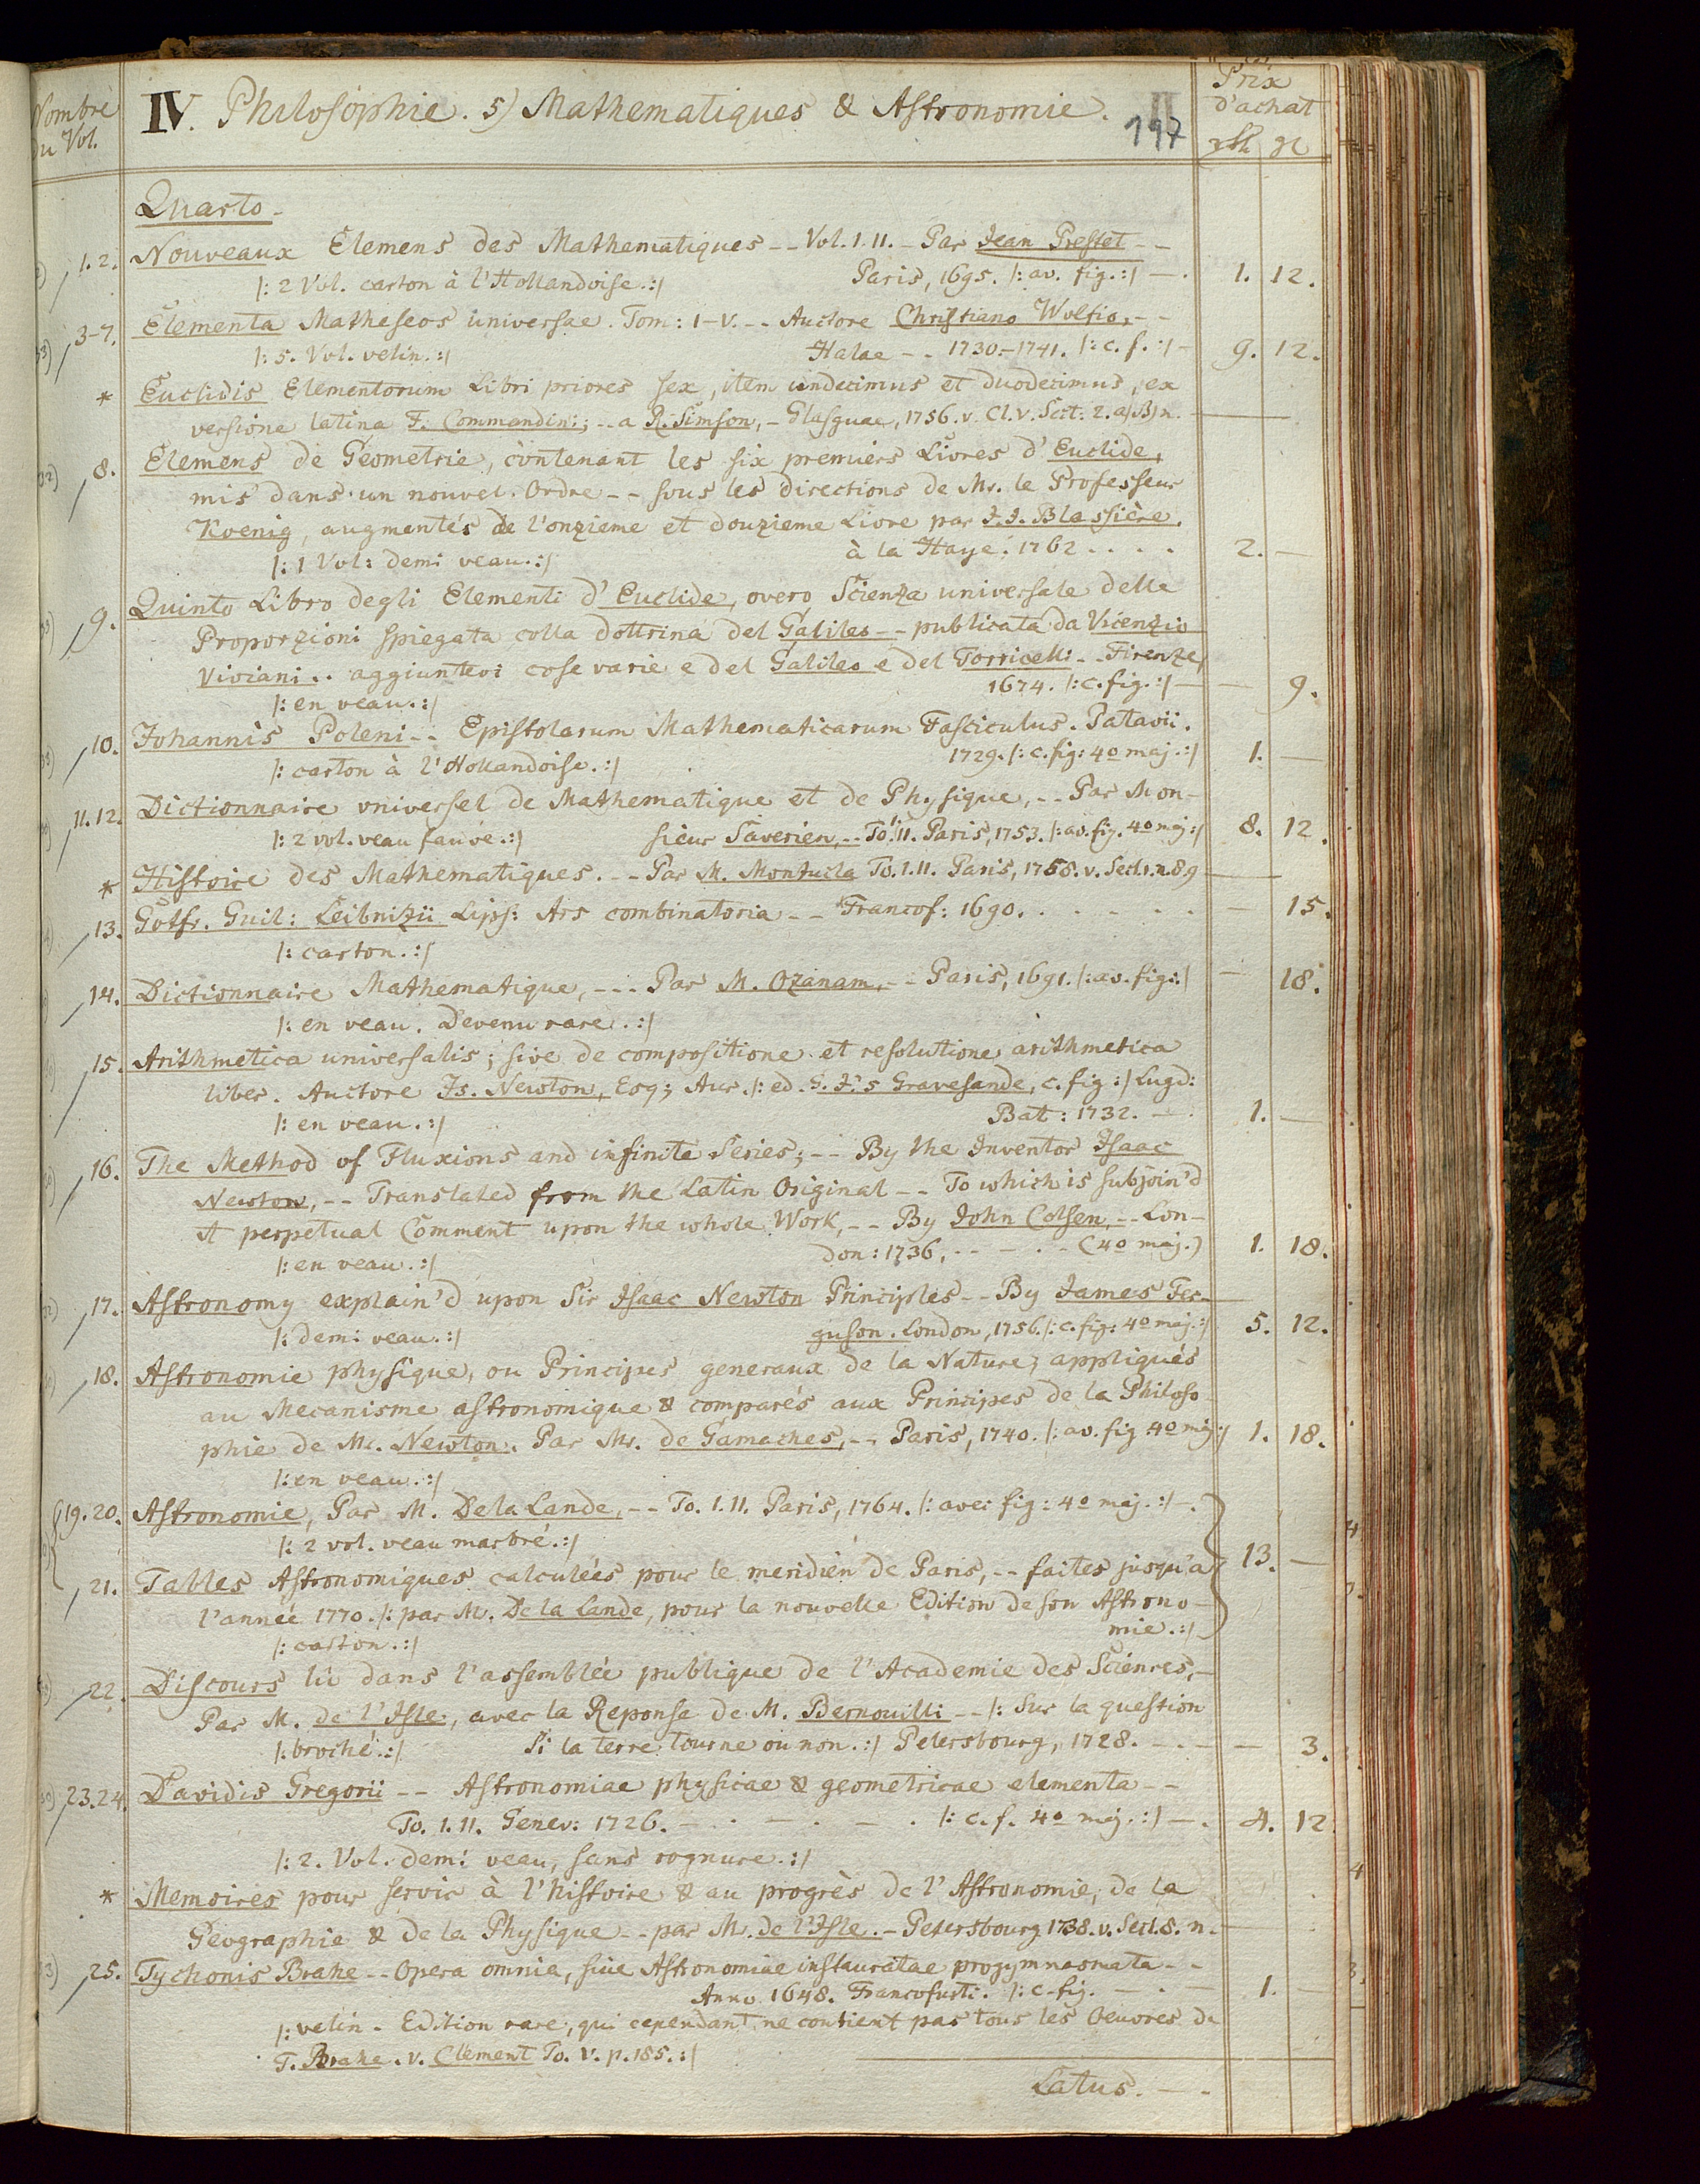 Nombre du Vol.
IV. Philosophie. 5) Mathematiques & Astronomie.
197
Prix d'achat
Quarto.
1.2. Nouveaux Elemens des Mathematiques -- Vol. I. II. - Par Jean Prestet --
|: 2 Vol. carton à l'Hollandoise. :| Paris, 1695. |: av. fig. :| - . 1. 12.
3-7. Elementa Matheseos universae. Tom: I-V. -- Auctore Christiano Wolfio, --
|: 5. Vol. velin. :| Halae -- 1730.-1741. |: c. f. :| - 9. 12.
* Euclidis Elementorum Libri priores sex, item undecimus et duodecimus, ex
versione latina F. Commandini; -- a R. Simson, - Glasguae, 1756. v. Cl. V. Sect: 2. a)B) n. -
8. Elemens de Geometrie, contenant les six premiers Livres d'Euclide,
mis dans un nouvel Ordre -- sous les directions de Mr. le Professeur
Koenig, augmentés de l'onzieme et douzieme Livre par J. J. Blassière.
|: 1 Vol: demi veau. :| à la Haye. 1762 . . . . 2. -
9. Quinto Libro degli Elementi d'Euclide, overo Scienza universale delle
Proporzioni spiegata colla dottrina del Galileo -- publicata da Vicenzio
Viviani .. aggiuntevi cose varie e del Galileo e del Torricelli -- Firenze,
|: en veau. :| 1674. |: c. fig. :| - - 9.
10. Johannis Poleni -- Epistolarum Mathematicarum Fasciculus. Patavii.
|: carton à l'Hollandoise. :| 1729. |: c. fig: 4o maj. :| 1. -
11.12. Dictionnaire universel de Mathematique et de Physique, -- Par Mon-
|: 2 vol. veau fauve. :| sieur Saverien, -- To. I. II. Paris, 1753. |: av. fig. 4o maj :| 8. 12.
* Histoire des Mathematiques. -- Par M. Montucla To. I. II. Paris, 1758. v. Sect. 1. n. 8.9
13. Gotfr. Guil: Leibnizii Lips: Ars combinatoria -- Francof: 1690. . . . . . . - 15.
|: carton. :|
14. Dictionnaire Mathematique, --- Par M. Ozanam, -- Paris, 1691. |: av. fig: :| - 18.
|: en veau. Devenu rare. :|
15. Arithmetica universalis; sive de compositione et resolutione arithmetica
liber. Auctore Is. Newton, Esq; Aur. |: ed. G. J. 's Gravesande, c. fig :| Lugd:
|: en veau. :| Bat: 1732. - . 1. -
16. The Method of Fluxions and infinite Series; -- By the Inventor Isaac
Newton, -- Translated from the Latin Original -- To which is subjoin'd
A perpetual Comment upon the whole Work, -- By John Colsen, -- Lon-
|: en veau. :| don: 1736, -- - . - (4o maj.) 1. 18.
17. Astronomy explain'd upon Sir Isaac Newton Principles -- By James Fer-
|: demi veau. :| guson. London, 1756. |: c. fig: 4o maj. :| 5. 12.
18. Astronomie physique, ou Principes generaux de la Nature, appliqués
au Mecanisme astronomique & comparés aux Principes de la Philoso-
phie de Mr. Newton. Par Mr. de Gamaches, -- Paris, 1740. |: av. fig 4o maj :| 1. 18.
|: en veau. :|
19.20. Astronomie, Par M. De la Lande, -- To. I. II. Paris, 1764. |: avec fig: 4o maj. :| - .
|: 2 vol. veau marbré. :|
21. Tables Astronomiques calculées pour le meridien de Paris, -- faites jusqu'a 13. -
l'année 1770. |: par M. De la Lande, pour la nouvelle Edition de son Astrono-
|: carton. :| mie. :|
22. Discours lû dans l'assemblée publique de l'Academie des Sciences, -
Par M. de l'Isle, avec la Reponse de M. Bernouilli -- |: Sur la question
|: broché. :| Si la terre tourne ou non. :| Petersbourg, 1728. - . - - 3.
23.24. Davidis Gregorii -- Astronomiae physicae & geometricae elementa --
To. I. II. Genev: 1726. - . - . - . |: c. f. 4o maj. :| - . 4. 12.
|: 2. Vol. demi veau, sans rognure. :|
* Memoires pour servir à l'histoire & au progrès de l'Astronomie, de la
Geographie & de la Physique -- par M. de l'Isle. - Petersbourg 1738. v. Sect. 8. n. -
25. Tychonis Brahe -- Opera omnia, sive Astronomiae instauratae progymnasmata --
Anno 1648. Francofurti. |: c. fig. - . - 1. -
|: velin - Edition rare, qui cependant ne contient pas tous les Oeuvres de
T. Brahe. v. Clement To. V. p. 185. :|
Latus. - -